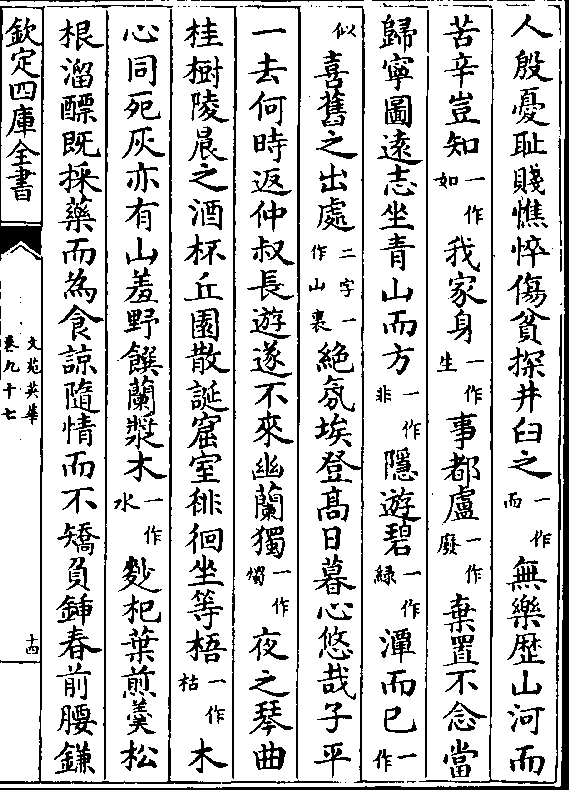 人殷憂耻賤憔悴傷貧探井臼之一作而無樂歴山河而
苦辛豈知一作如我家身一作生事都盧一作廢棄置不念當
歸寧圖遠志坐青山而方一作非隱遊碧一作緑潭而已一作
似喜舊之出處二字一作山裏絶氛埃登髙日暮心悠哉子平
一去何時返仲叔長遊遂不來幽蘭獨一作燭夜之琴曲
桂樹陵晨之酒杯丘園散誕窟室徘徊坐等梧一作枯木
心同死灰亦有山羞野饌蘭漿木一作水麨杞葉煎羹松
根溜醥既採藥而為食諒隨情而不矯負鍤春前腰鎌
欽定四庫全書
文苑英華
卷九十七
十四